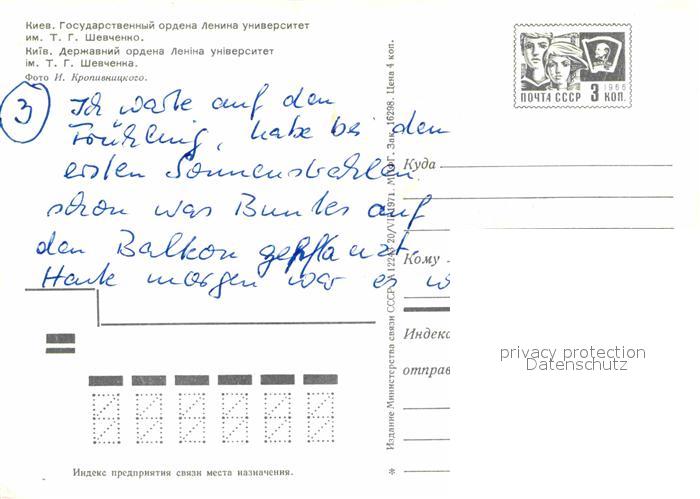 Киев. Государственный ордена Ленина университет
им. Т. Г. Шевченко.
Київ. Державний ордена Леніна університет
ім. Т. Г. Шевченка.
Фото И. Кропивницкого.
ПОЧТА СССР 3 КОП.
1966
3
Ich warte auf den
Frühling, habe bei den
ersten Sonnenstrahlen
schon was Buntes auf
den Balkon gepflanzt.
Heute morgen war es w
Издание Министерства связи СССР. 20/VII 1971. Зак. 16298. Цена 4 коп.
Куда
Кому
Индекс
отправ
privacy protection
Datenschutz
Индекс предприятия связи места назначения.
*